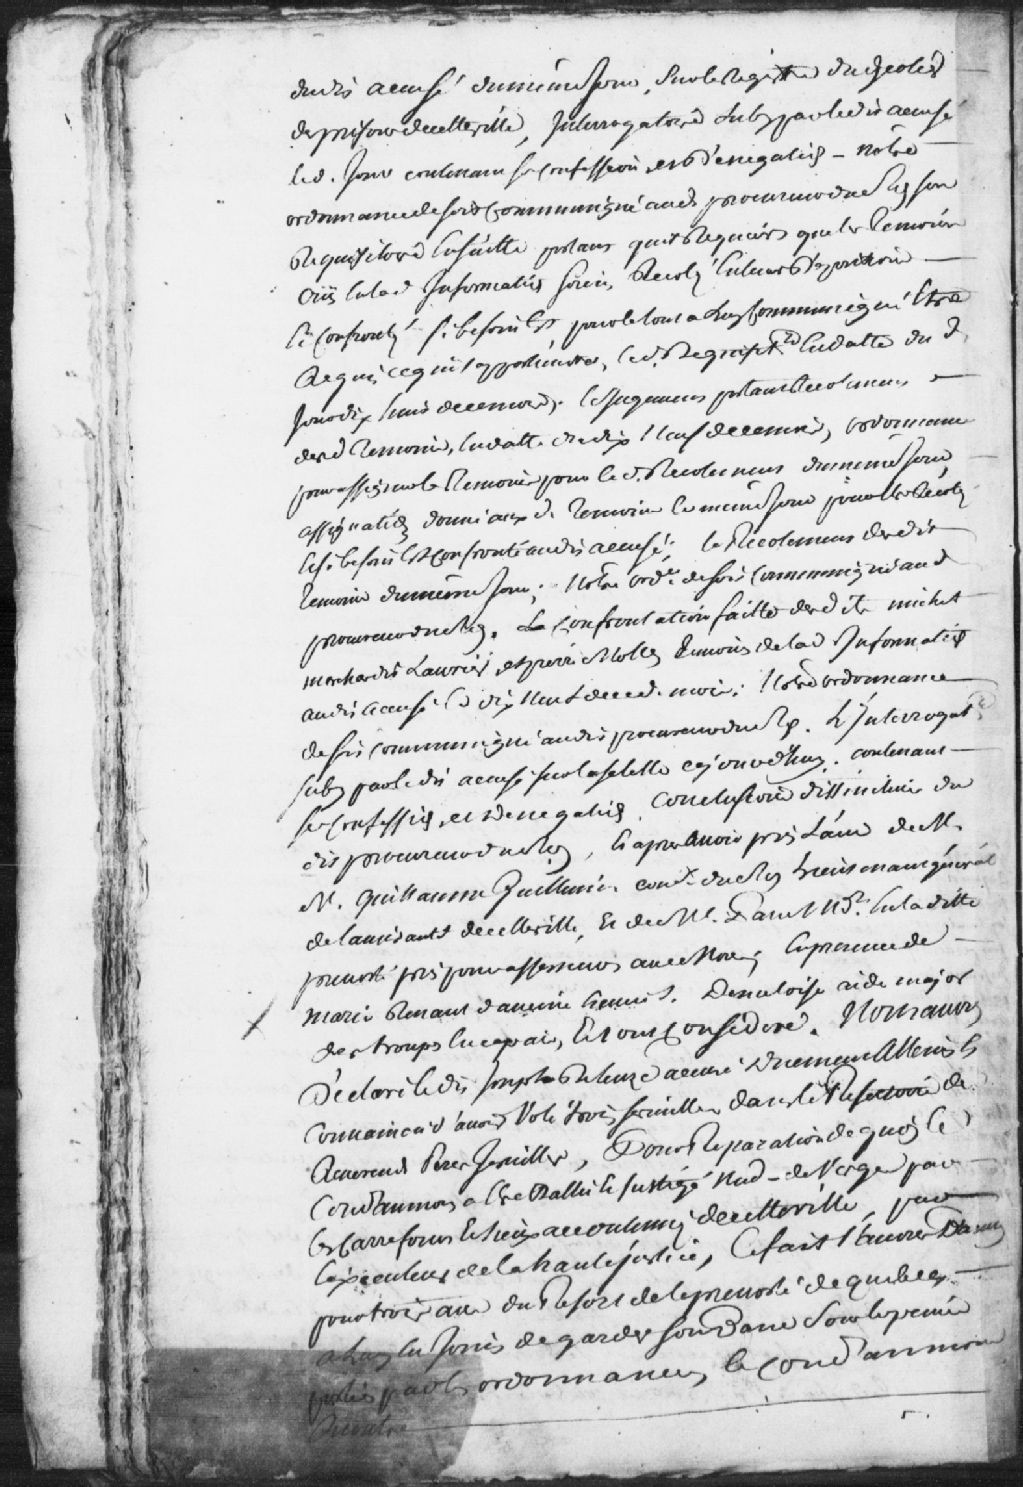 dudit accusé du mesme jour, sur le registre du geolier
des prisons de cette ville, Interrogatoire suby par ledit accusé
led. jour contenant ses confessions et denegations - nostre
ordonnance de soit communiqué aud procureur du Roy son
Requisitoire ensuitte portant qu'il requiert que les temoins
ouis en lad Information soient Recolés en leurs depositions
et confrontés si besoin est pour le tout a luy communiqué Estre
Requis ce qu'il appartiendra, led. Requisitre en datte du d
jour dix huit decembre; le jugement portant Recolement
desd temoins, en datte du dix neuf decembre, ordonnance
pour assigner les temoins pour led. Recolement du mesme jour,
assignation donné aux d. temoins le mesme jour pour estre Recolés
et si besoin est confrontés audit accusé; le Recolement desdits
temoins du mesme jour; nostre ordce de soit communiqué aud
procureur du Roy. La confrontation faitte desdits michel
marchand Laurier et pierre temoins de lad Information
audit accusé le dix neuf de ced. mois; Nostre ordonnance
de soit communiqué audit procureur du Roy. L'Interrogatre
suby par ledit accusé sur la selette cejourd'huy. contenant
ses confessions et denegations. Conclusions diffinitives du
dit procureur du Roy, et apres avoir pris l'avis de M.
M. Guillaume Guillimin conr. du Roy Lieutenant general
de l'amirauté de cette ville, Et de Me. Nre. en la ditte
prevosté pris pour assesseurs avec Nous, en presence de
aide major
des troupes en ce pais, Et tout consideré. Nous avons
Declaré ledit joseph accusé duement atteint et
convaincu d'avoir volé trois serviettes dans le Refectoire des
Reverends Peres Jesuittes, Pour Reparation de quoy le
Condamnons a Estre Battu et fustigé Nud de Verges par
les Carrefours et Lieux accoutumés de cette ville, par
l'executeur de la haute justice, Ce fait l'avons Bany
pour trois ans du Resort de la prevosté de quebec,
a luy Enjoint de garder son Ban sous les peines
portées par les ordonnances, le condamnons
Enoutre